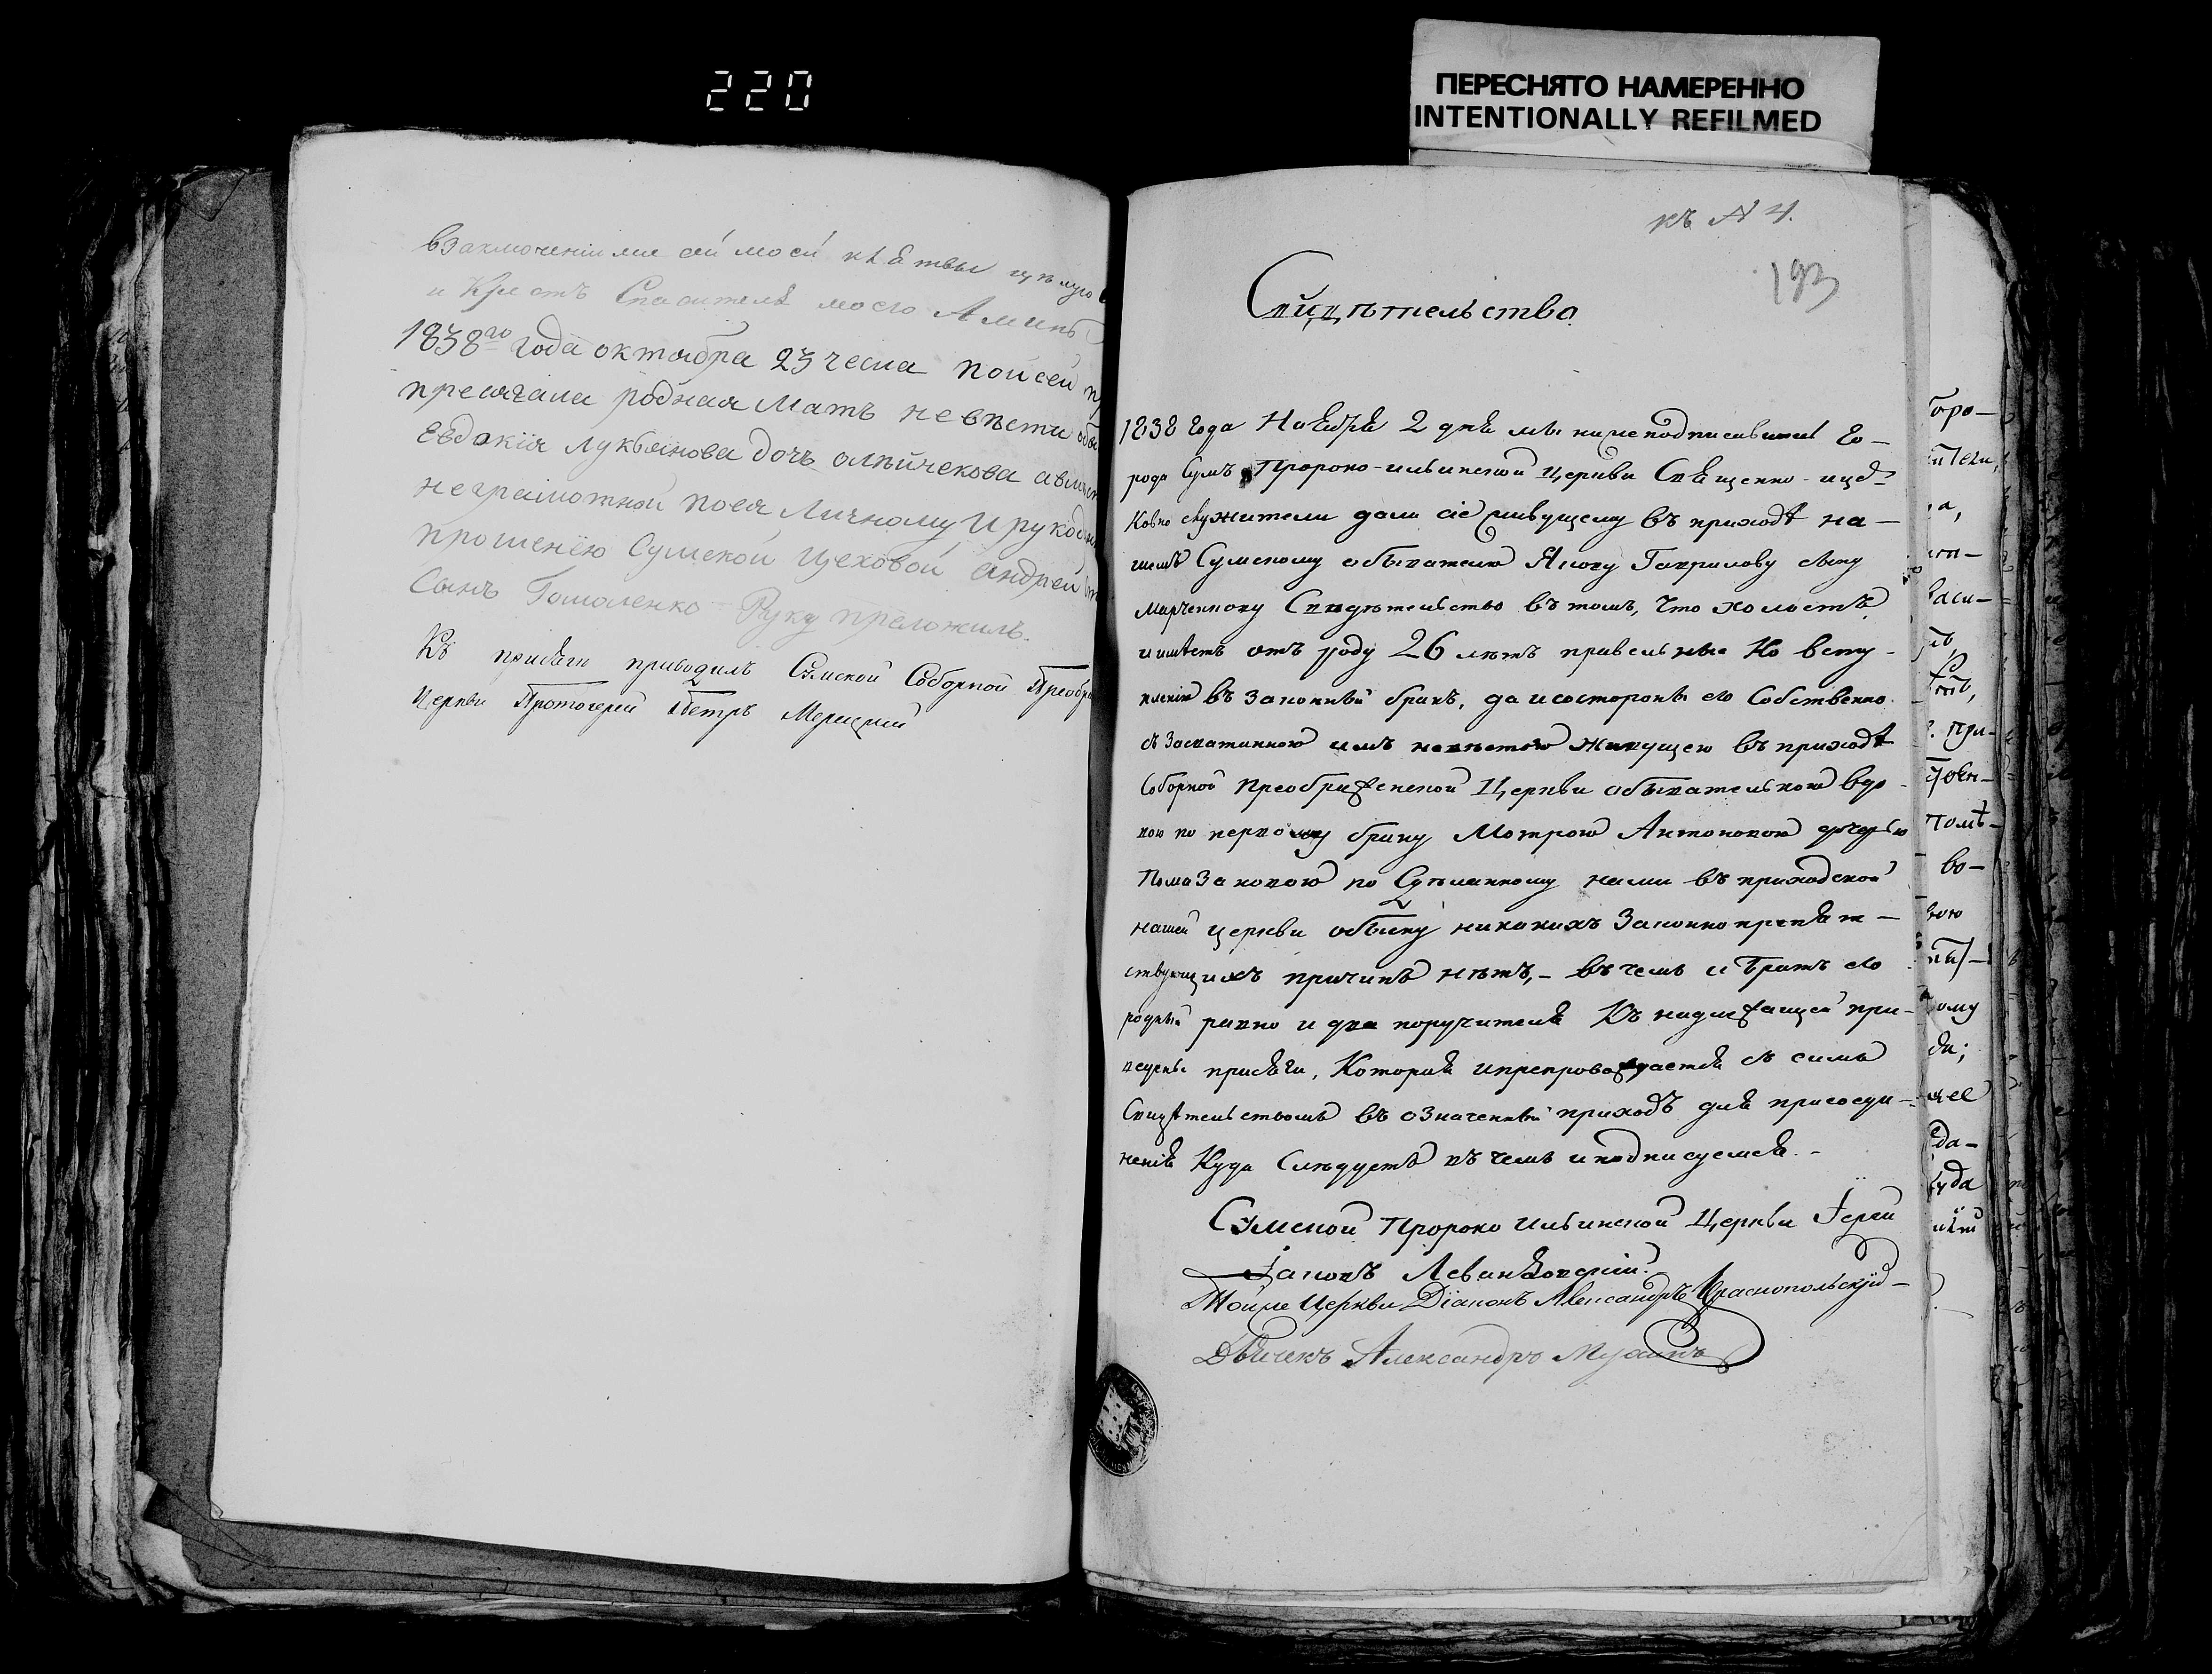 220
ПЕРЕСНЯТО НАМЕРЕННО
INTENTIONALLY REFILMED
взаключении же сей моей клятвы цѣлую
и Крестъ Спасителя моего Аминь
1838го года октября 23 чесла по сей
пресягали родная Мать невѣсти
Евдокія лукьянова дочь
неграмотной поея Личному
прошенею Сумской Цеховой андрей
Сынъ Гомоленко Руку преложилъ.
Къ присягѣ приводилъ Сумской Соборной
Церкви Протоіерей Петръ
къ № 4.
193
Свидѣтельство
1838 года Ноября 2 дня мы нижеподписавшиеся го-
рода Сумъ Пророко-ильинской Церкви Священно- и
служители дали сіе живущему въ приходѣ на-
шемъ Сумскому обывателю Якову Гаврилову сыну
Марченкову Свидѣтельство въ томъ, что холостъ,
и имѣетъ отъ роду 26 лѣтъ Ко всту-
пленію въ законный бракъ, да и состороны его Собственно
съ засватанною имъ невѣстою живущею въ приходѣ
Соборной преображенской Церкви обывателькою вдо-
вою по первому браку Мотрою Антоновою дочерью
Помазановою по Сдѣланному нами въ приходской
нашей церкви обыску никакихъ Законно препят-
ствующихъ причинъ нѣтъ, - въ чемъ и Братъ его
родный равно и два поручителя Къ надлежащей при-
ведены присяги, Которая и препровождается съ симъ
Свидѣтельствомъ въ означенный приходъ для присоеди-
ненія Куда Слѣдуетъ въ чемъ и подписуемся. -
Сумской Пророко Ильинской Церкви Іерей
Іаковъ
Тойже Церкви Діаконъ Александръ Краснопольскій
Дьячекъ Александръ